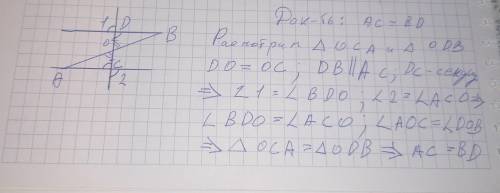 1 D
O
B
C
A 2
Док-ть: AC = BD
Расмотрим △ OCA и △ ODB
DO = OC; DB∥AC, DC-секущ
⇒ ∠1 = ∠BDO; ∠2 = ∠ACO ⇒
∠BDO = ∠ACO; ∠AOC = ∠DOB
⇒ △OCA = △ODB ⇒ AC = BD